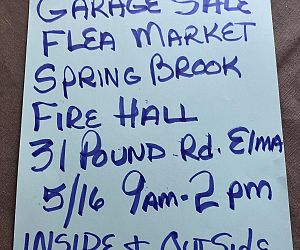 GARAGE SALE
FLEA MARKET
SPRING BROOK
FIRE HALL
31 POUND Rd. Elma
5/16 9am-2pm
INSIDE + OUTSIDE